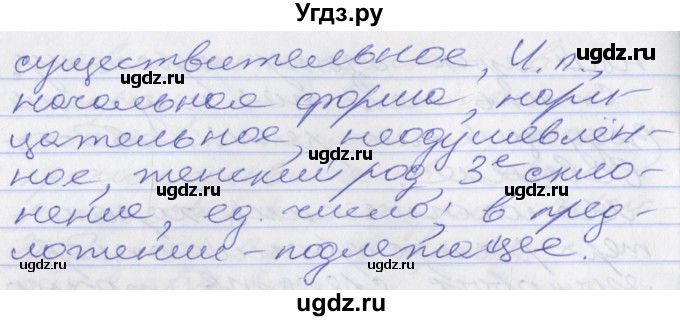 Угдз.ру
существительное, И.п.,
начальная форма, нари-
цательное, неодушевлён-
ное, женский род, 3е скло-
нение, ед. число; в пред-
ложении – подлежащее.
ugdz.ru ugdz.ru
ugdz.ru ugdz.ru
ugdz.ru ugdz.ru
ugdz.ru ugdz.ru
ugdz.ru